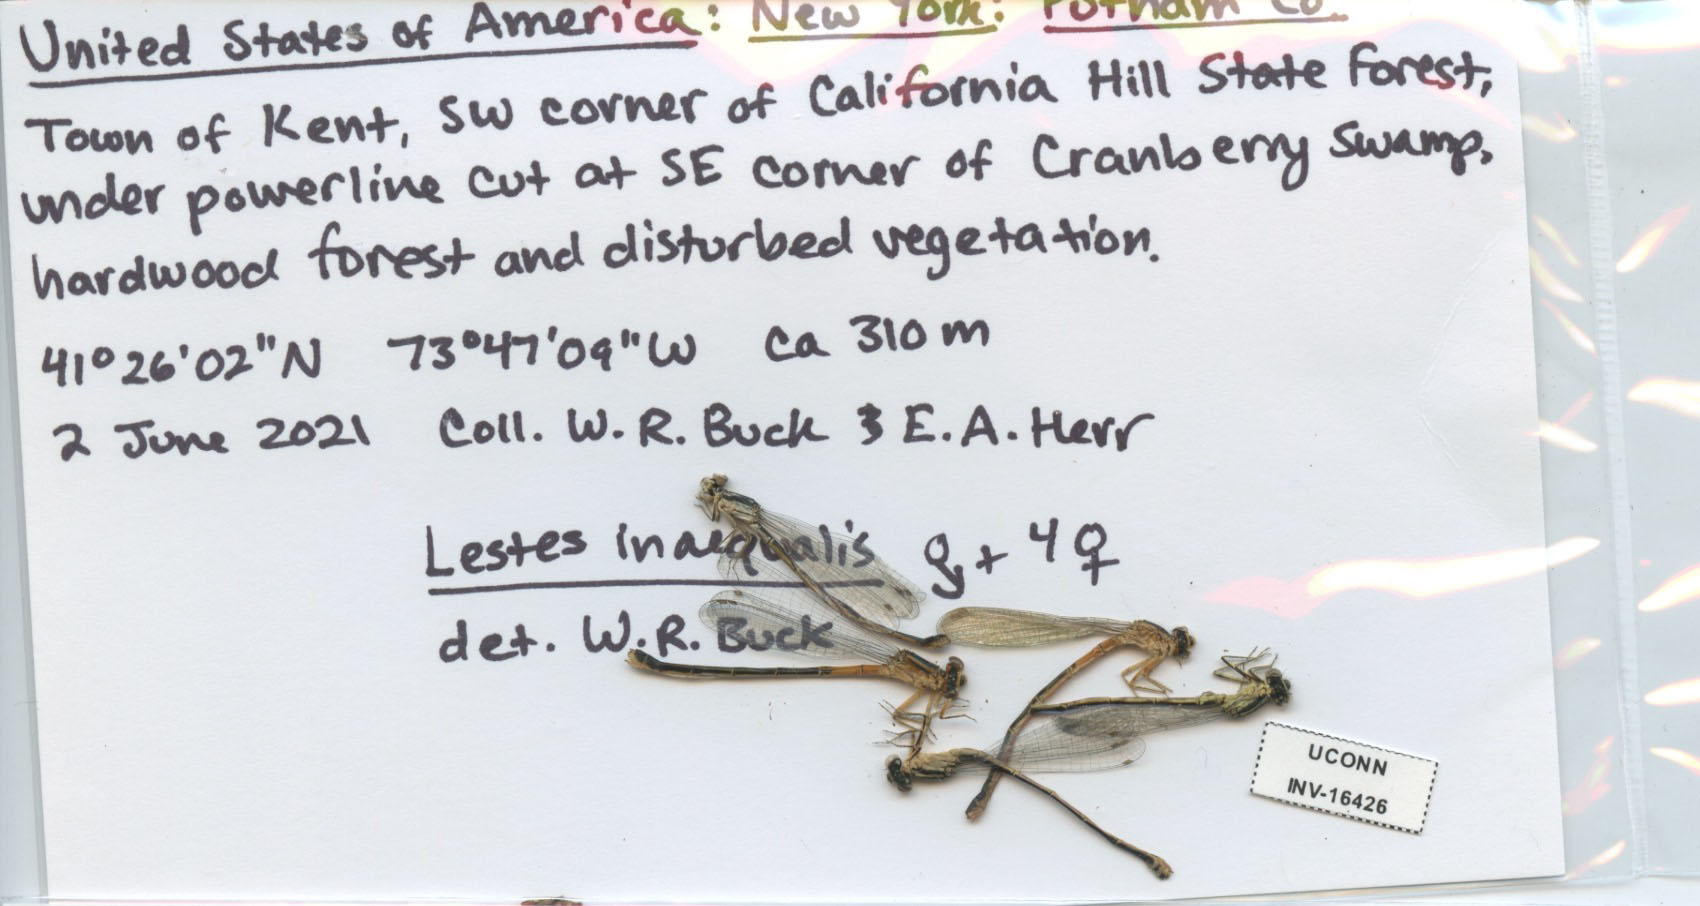 United States of America: New York: Putnam Co.
Town of Kent, SW corner of California Hill State Forest,
under powerline cut at SE corner of Cranberry Swamp,
hardwood forest and disturbed vegetation.
41°26'02"N 73°47'09"W ca 310 m
2 June 2021 Coll. W. R. Buck & E. A. Herr
Lestes inaequalis + 4 ♀
det. W. R. Buck
UCONN
INV-16426